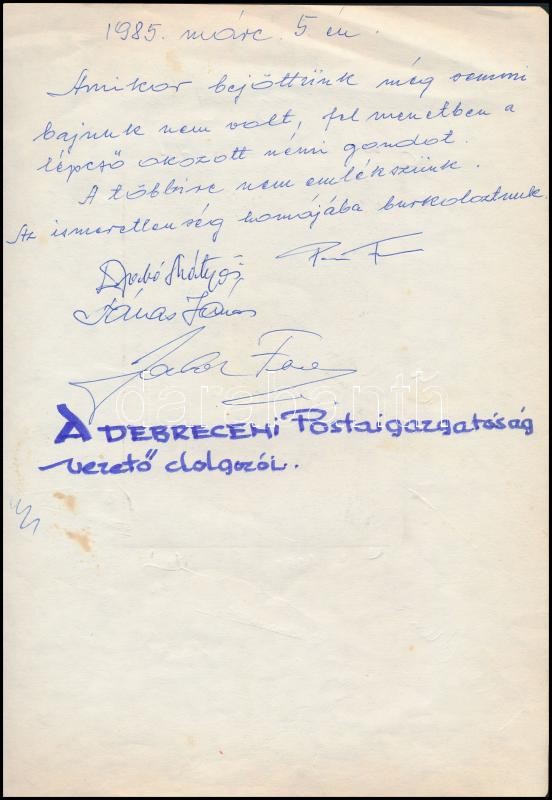 1985. márc. 5 én.
Amikor bejöttünk még semmi
bajunk nem volt, fel menetben a
lépcső okozott némi gondot.
A többire nem emlékszünk.
Az ismeretlenség homájába burkoloztunk.
Szabó Mátyás
János
darabanth
A DEBRECENI Postaigazgatóság
vezető dolgozói.